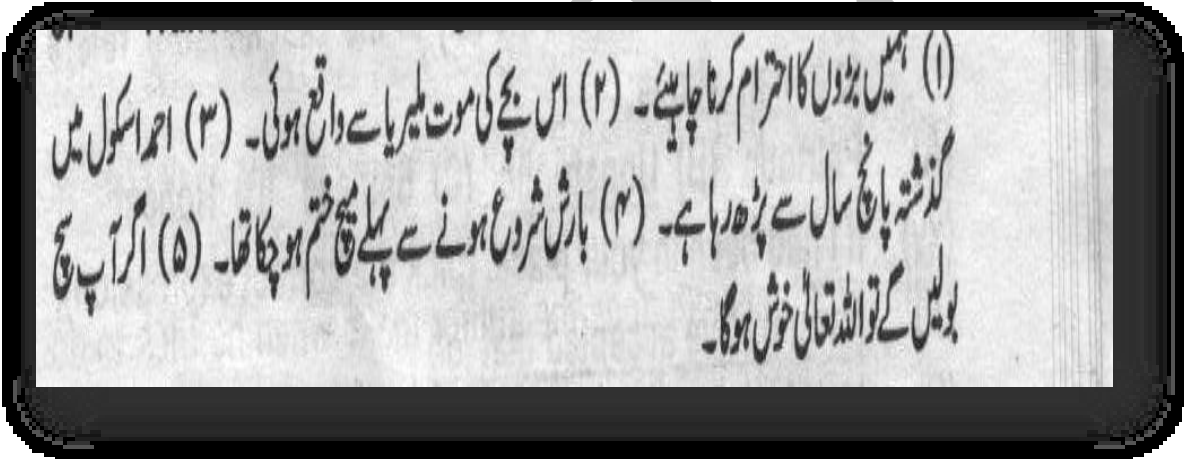 (۱) ہمیں بڑوں کا احترام کرنا چاہیئے۔ (۲) اس بچے کی موت ملیریا سے واقع ہوئی۔ (۳) احمد اسکول میں
گذشتہ پانچ سال سے پڑھ رہا ہے۔ (۴) بارش شروع ہونے سے پہلے میچ ختم ہو چکا تھا۔ (۵) اگر آپ سچ
بولیں گے تو اللہ تعالیٰ خوش ہوگا۔